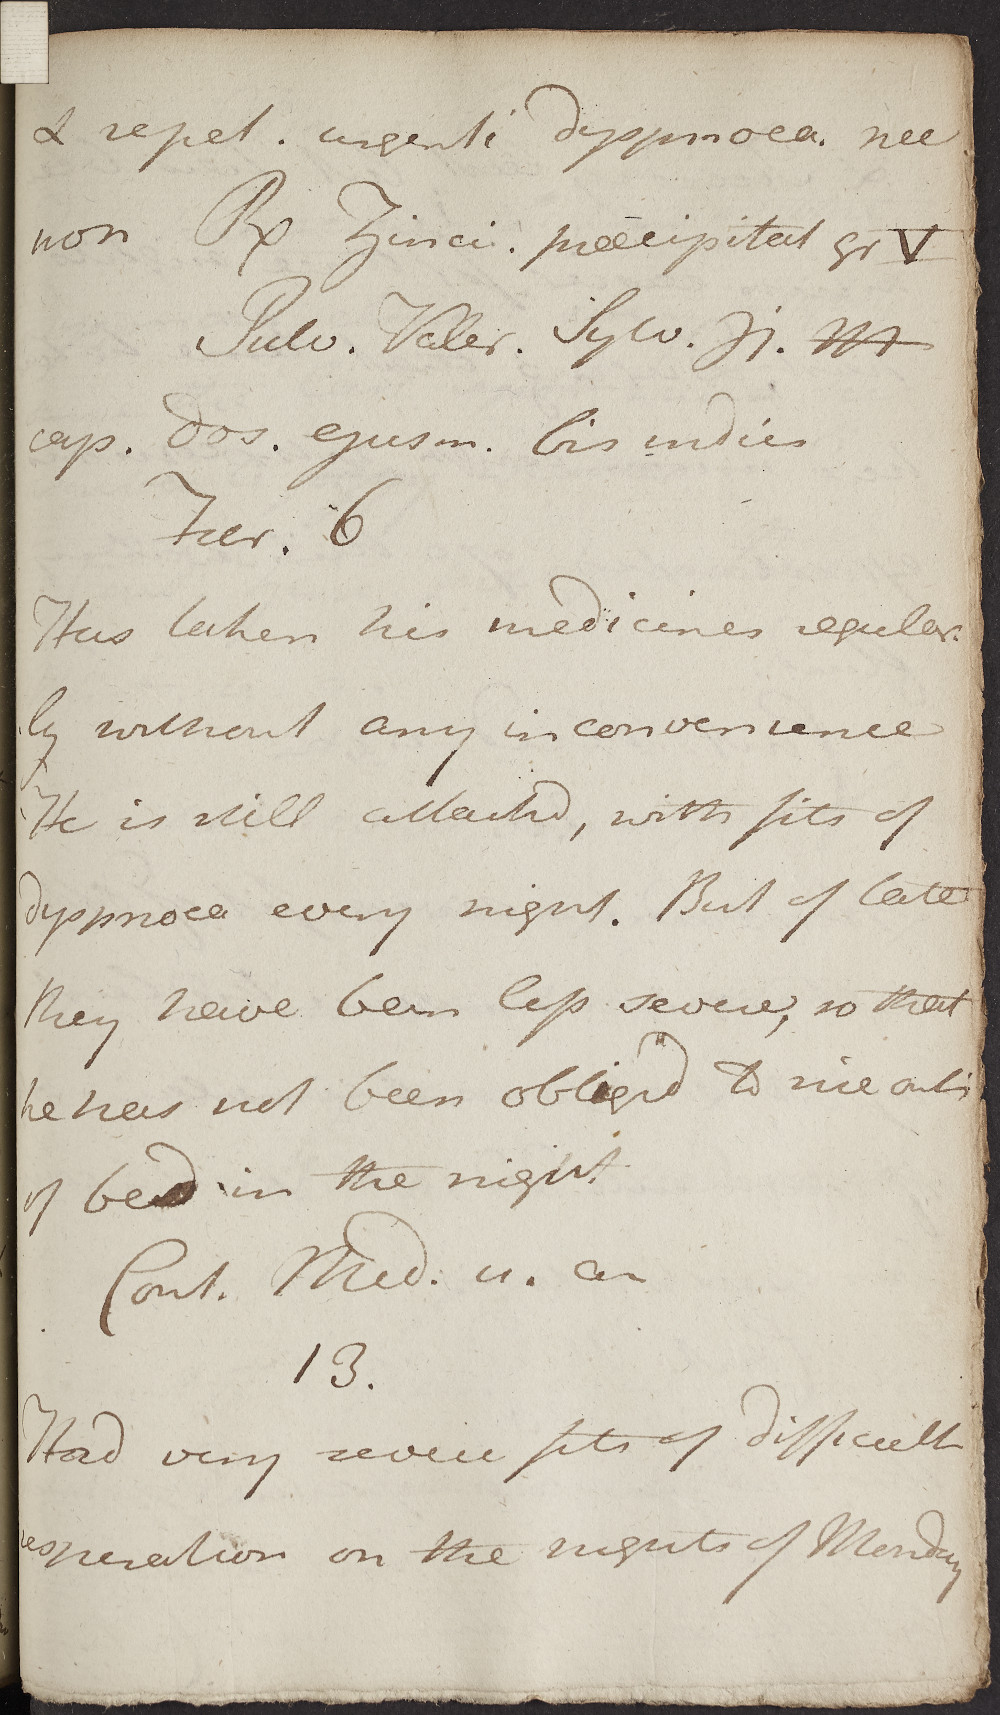 & repet. urgenti dyspnoea. nec
non Rx Zinci. præcipitat gr V
Pulv. Valer. Sylv. ʒj. M
cap. dos. ejusm. bis indies
6
Has taken his medicines regular-
ly without any inconvenience
He is still attackd, with fits of
dyspnoea every night. But of late
they have been less severe, so that
he has not been obligd to rise out
of bed in the night
Cont. Med. u. an
13.
Had very severe fits of difficult
respiration on the nights of Monday